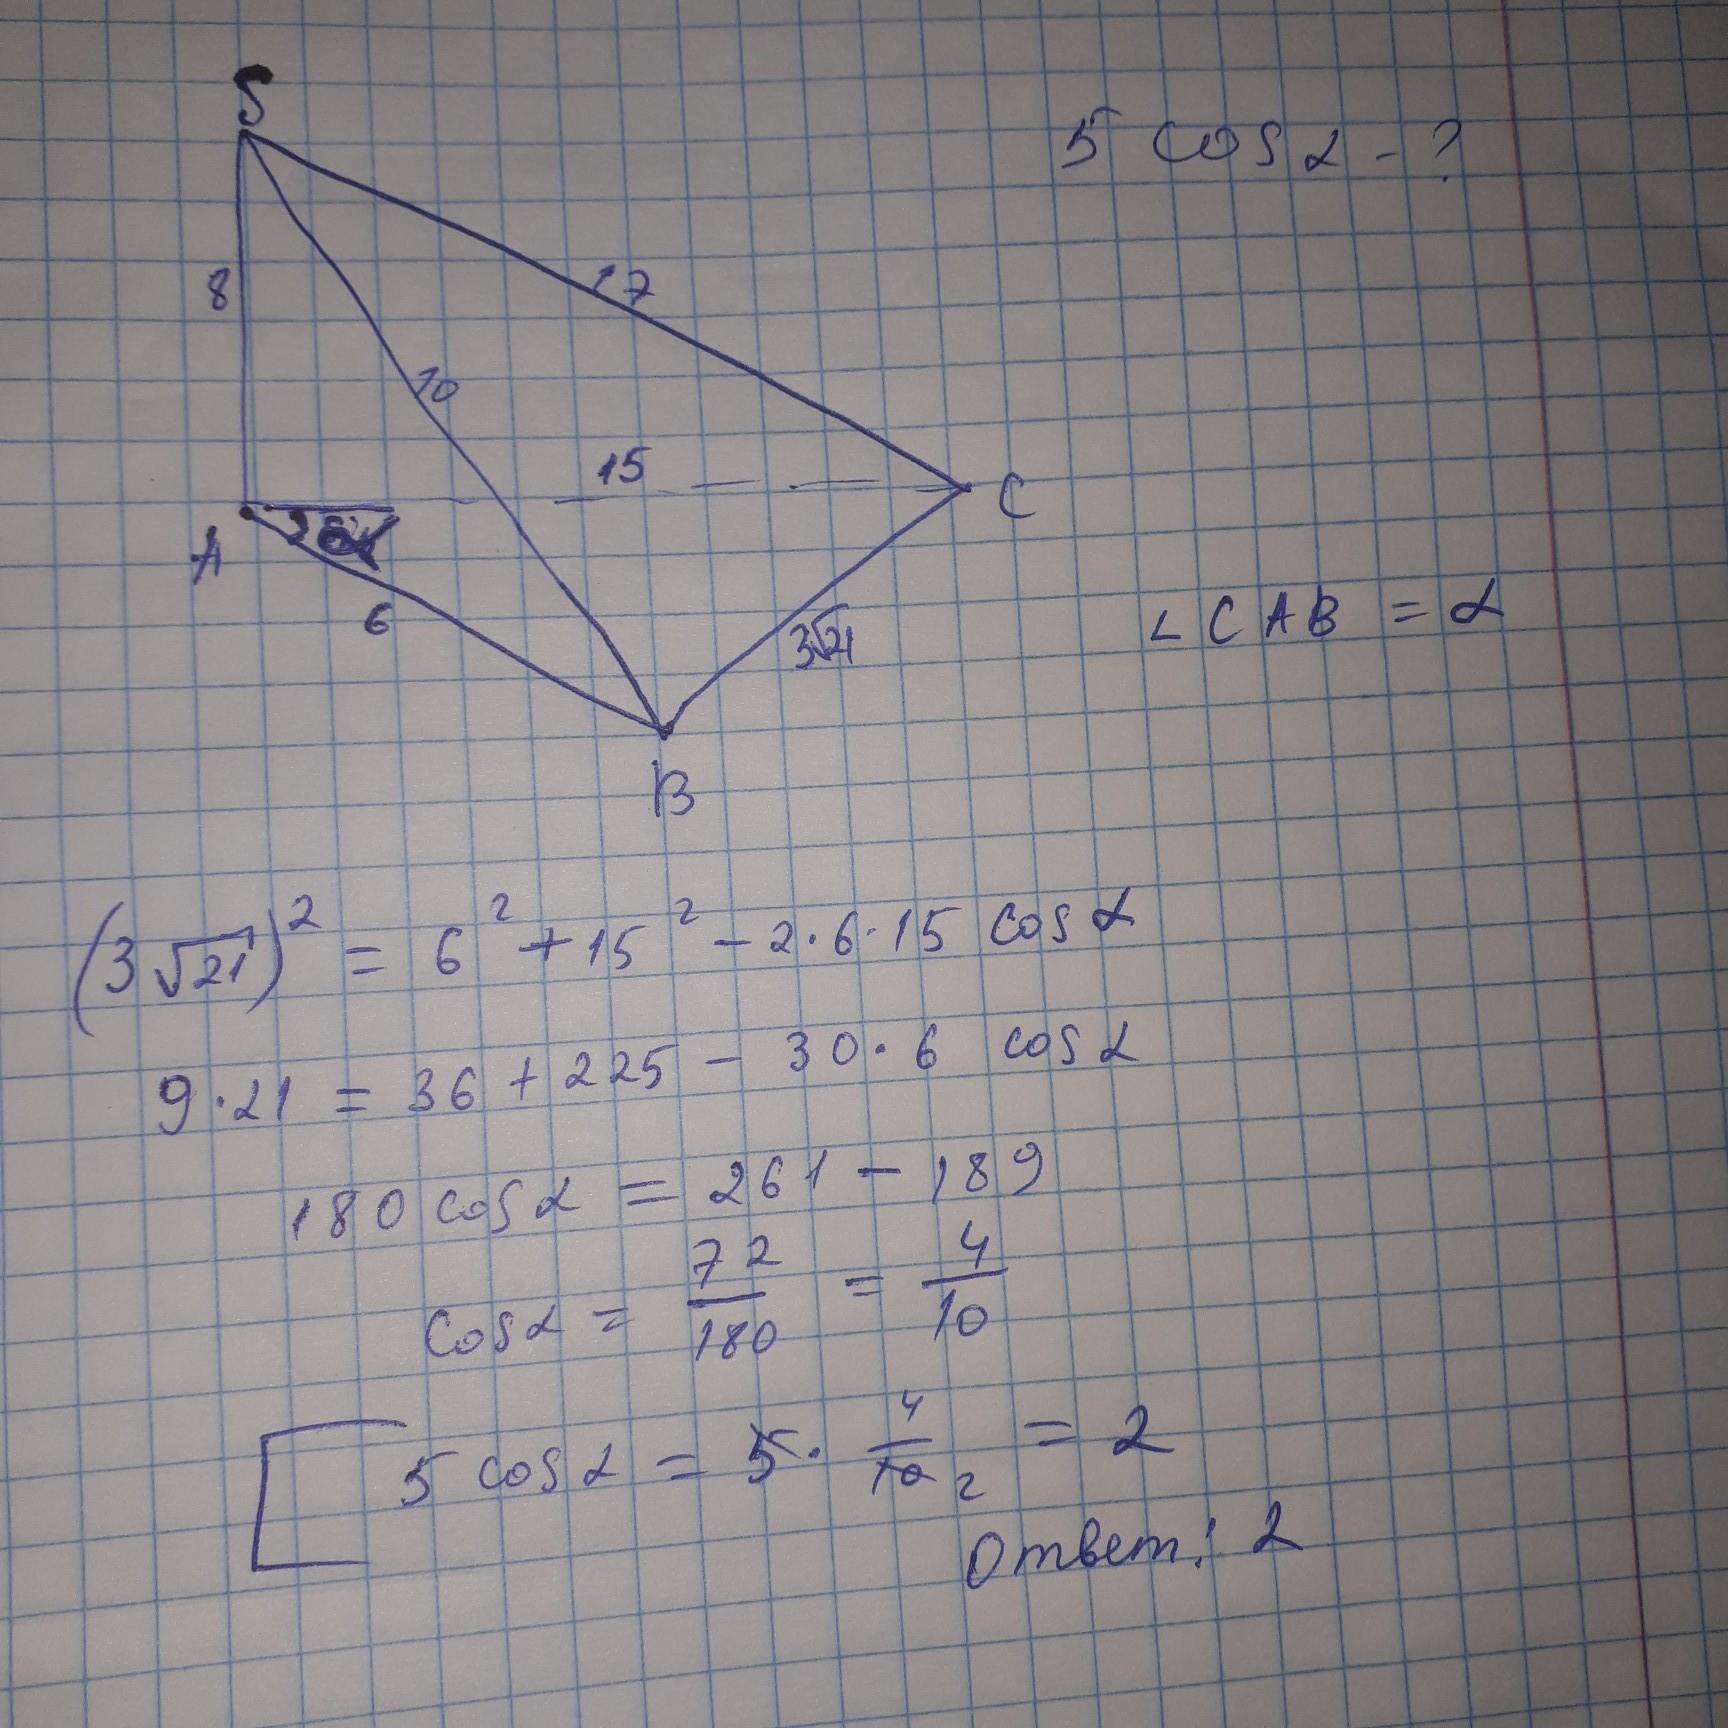 S
5 cos α - ?
8
17
10
15
C
A
6
3√21
∠ CAB = α
B
(3√21)² = 6² + 15² - 2·6·15 cos α
9·21 = 36 + 225 - 30·6 cos α
180 cos α = 261 - 189
cos α = 72/180 = 4/10
5 cos α = 5· 4/10 2 = 2
Ответ: 2